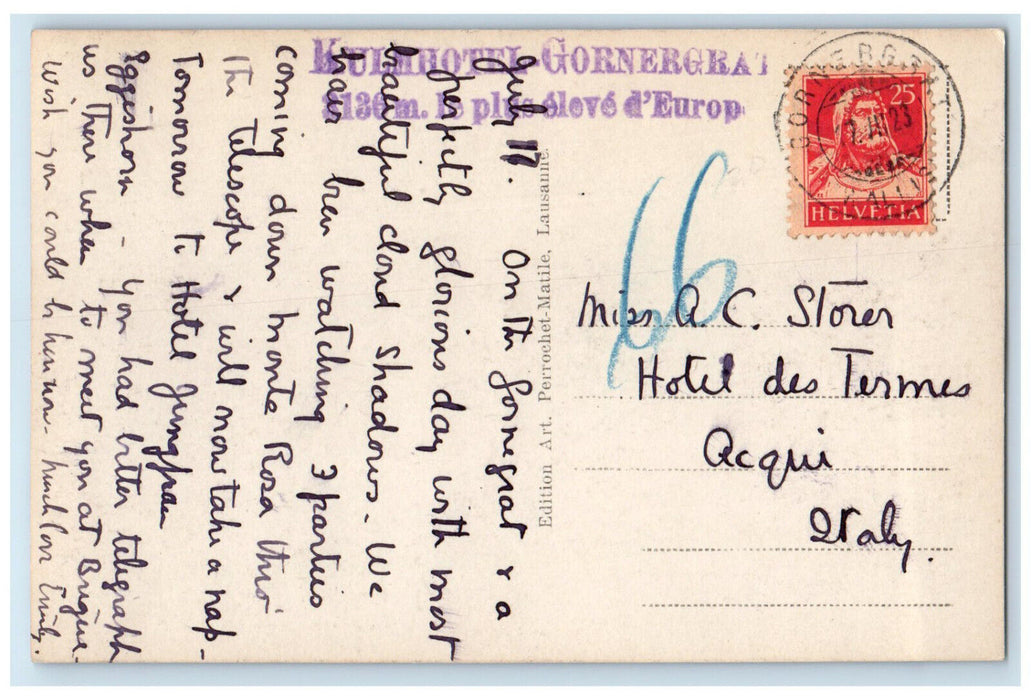 KULMHOTEL-GORNERGRAT
3136 m. le plus élevé d'Europ
July 17. On the Gornegrat & a
perfectly glorious day with most
beautiful cloud shadows. We
have been watching 3 parties
coming down Monte Rosa thro'
the telescope & will now take a nap-
Tomorrow to Hotel Jungfrau
Eggishorn - You had better telegraph
us there when to meet you at Brigue.
Wish you could be here now. Much love Emily.
Edition Art. Perrochet-Matile, Lausanne.
GORNERGRAT
23
25
HELVETIA
66
Miss A. C. Storer
Hotel des Termes
Acqui
Italy.